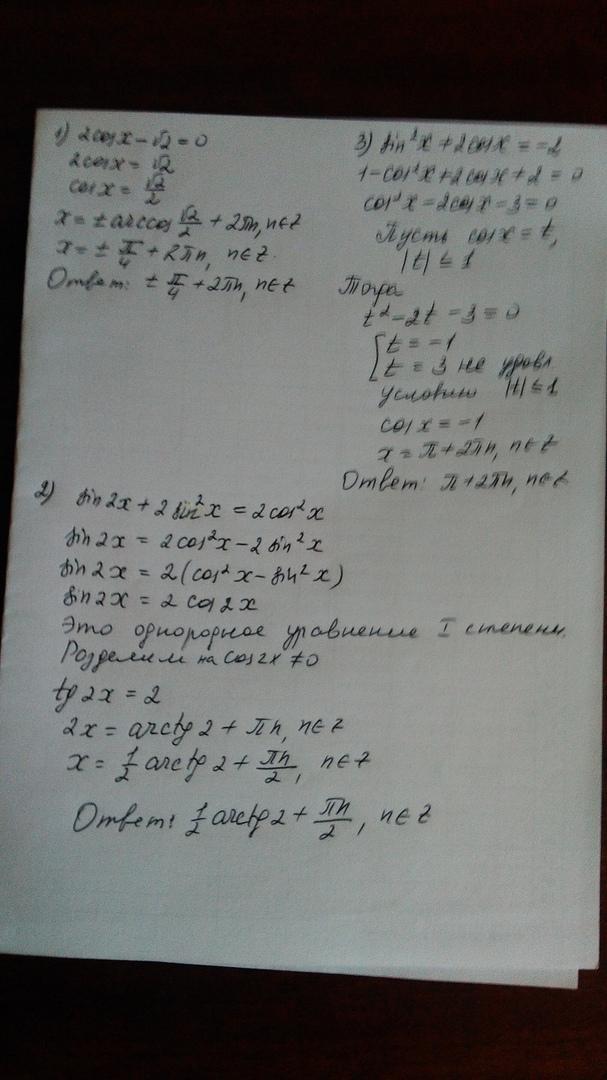 1) 2cosx - √2 = 0
2cosx = √2
cosx = √2/2
x = ± arccos √2/2 + 2πn, n∈Z
x = ± π/4 + 2πn, n∈Z.
Ответ: ± π/4 + 2πn, n∈Z
3) sin²x + 2cosx = -2
1 - cos²x + 2cosx + 2 = 0
cos²x - 2cosx - 3 = 0
Пусть cosx = t,
|t| ≤ 1
Тогда
t² - 2t - 3 = 0
[t = -1
t = 3 не уровл
условию |t| ≤ 1
cosx = -1
x = π + 2πn, n∈Z
Ответ: π + 2πn, n∈Z
2) sin2x + 2sin²x = 2cos²x
sin2x = 2cos²x - 2sin²x
sin2x = 2(cos²x - sin²x)
sin2x = 2cos2x
Это однородное уравнение I степени.
Разделим на cos2x ≠ 0
tg2x = 2
2x = arctg2 + πn, n∈Z
x = 1/2 arctg2 + πn/2, n∈Z
Ответ: 1/2 arctg2 + πn/2, n∈Z